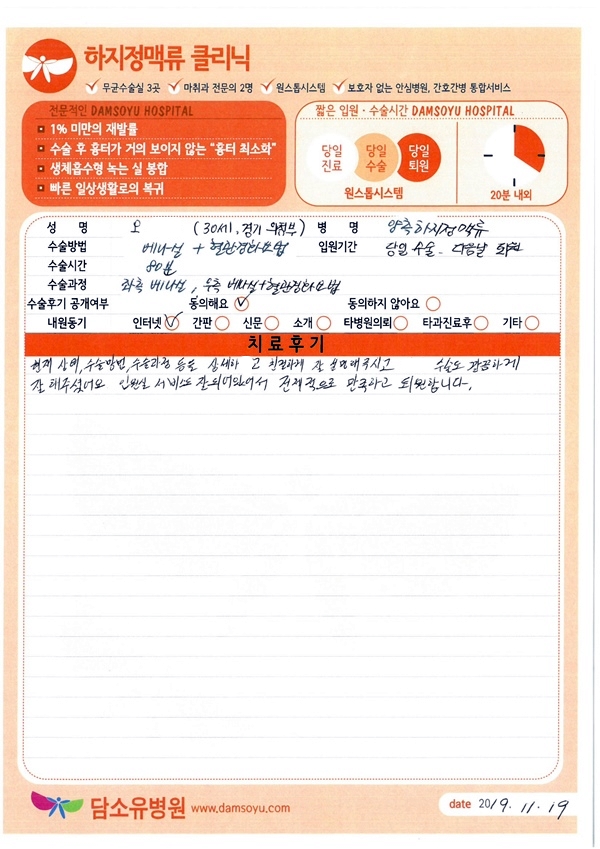 하지정맥류 클리닉
무균수술실 3곳 마취과 전문의 2명 원스톱시스템 보호자 없는 안심병원, 간호간병 통합서비스
전문적인 DAMSOYU HOSPITAL
1% 미만의 재발률
수술 후 흉터가 거의 보이지 않는 "흉터 최소화"
생체흡수형 녹는 실 봉합
빠른 일상생활로의 복귀
짧은 입원·수술시간 DAMSOYU HOSPITAL
당일 진료
당일 수술
당일 퇴원
원스톱시스템
20분 내외
성 명 오 (30세, 경기 의정부) 병 명 양측하지정맥류
수술방법 베나실 + 혈관경화요법 입원기간 당일 수술. 다음날 퇴원
수술시간 80분
수술과정 좌측 베나실, 우측 베나실+혈관경화요법
수술후기 공개여부 동의해요 동의하지 않아요
내원동기 인터넷 간판 신문 소개 타병원의뢰 타과진료후 기타
치료후기
현재 상태, 수술방법, 수술과정 등을 상세하고 친절하게 잘 설명해주시고 수술도 꼼꼼하게
잘 해주셨어요 입원실 서비스도 잘되어있어서 전체적으로 만족하고 퇴원합니다.
담소유병원 www.damsoyu.com
date 2019. 11. 19